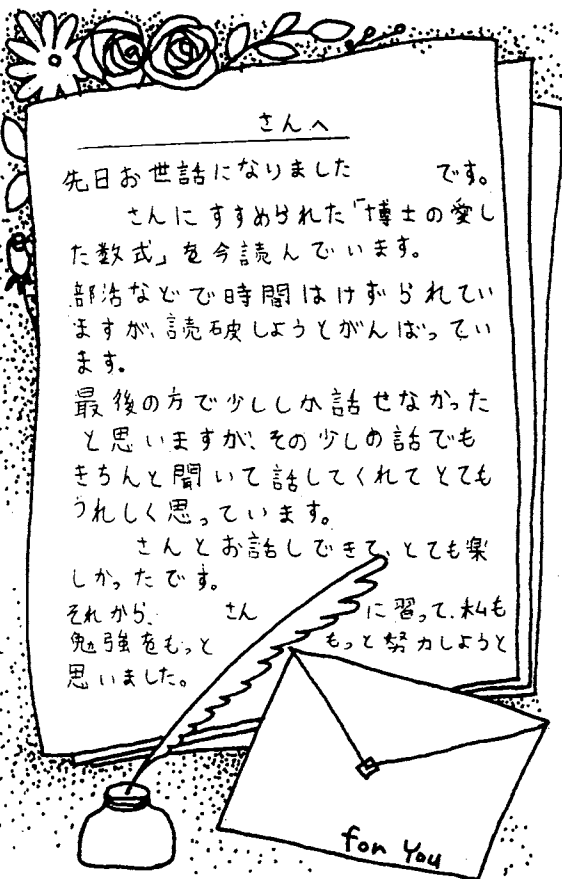 さんへ
先日お世話になりました です。
さんにすすめられた「博士の愛し
た数式」を今読んでいます。
部活などで時間はけずられてい
ますが、読破しようとがんばってい
ます。
最後の方で少ししか話せなかった
と思いますが、その少しの話でも
きちんと聞いて話してくれてとても
うれしく思っています。
さんとお話しできて、とても楽
しかったです。
それから、 さん に習って、私も
勉強をもっと もっと努力しようと
思いました。
for You